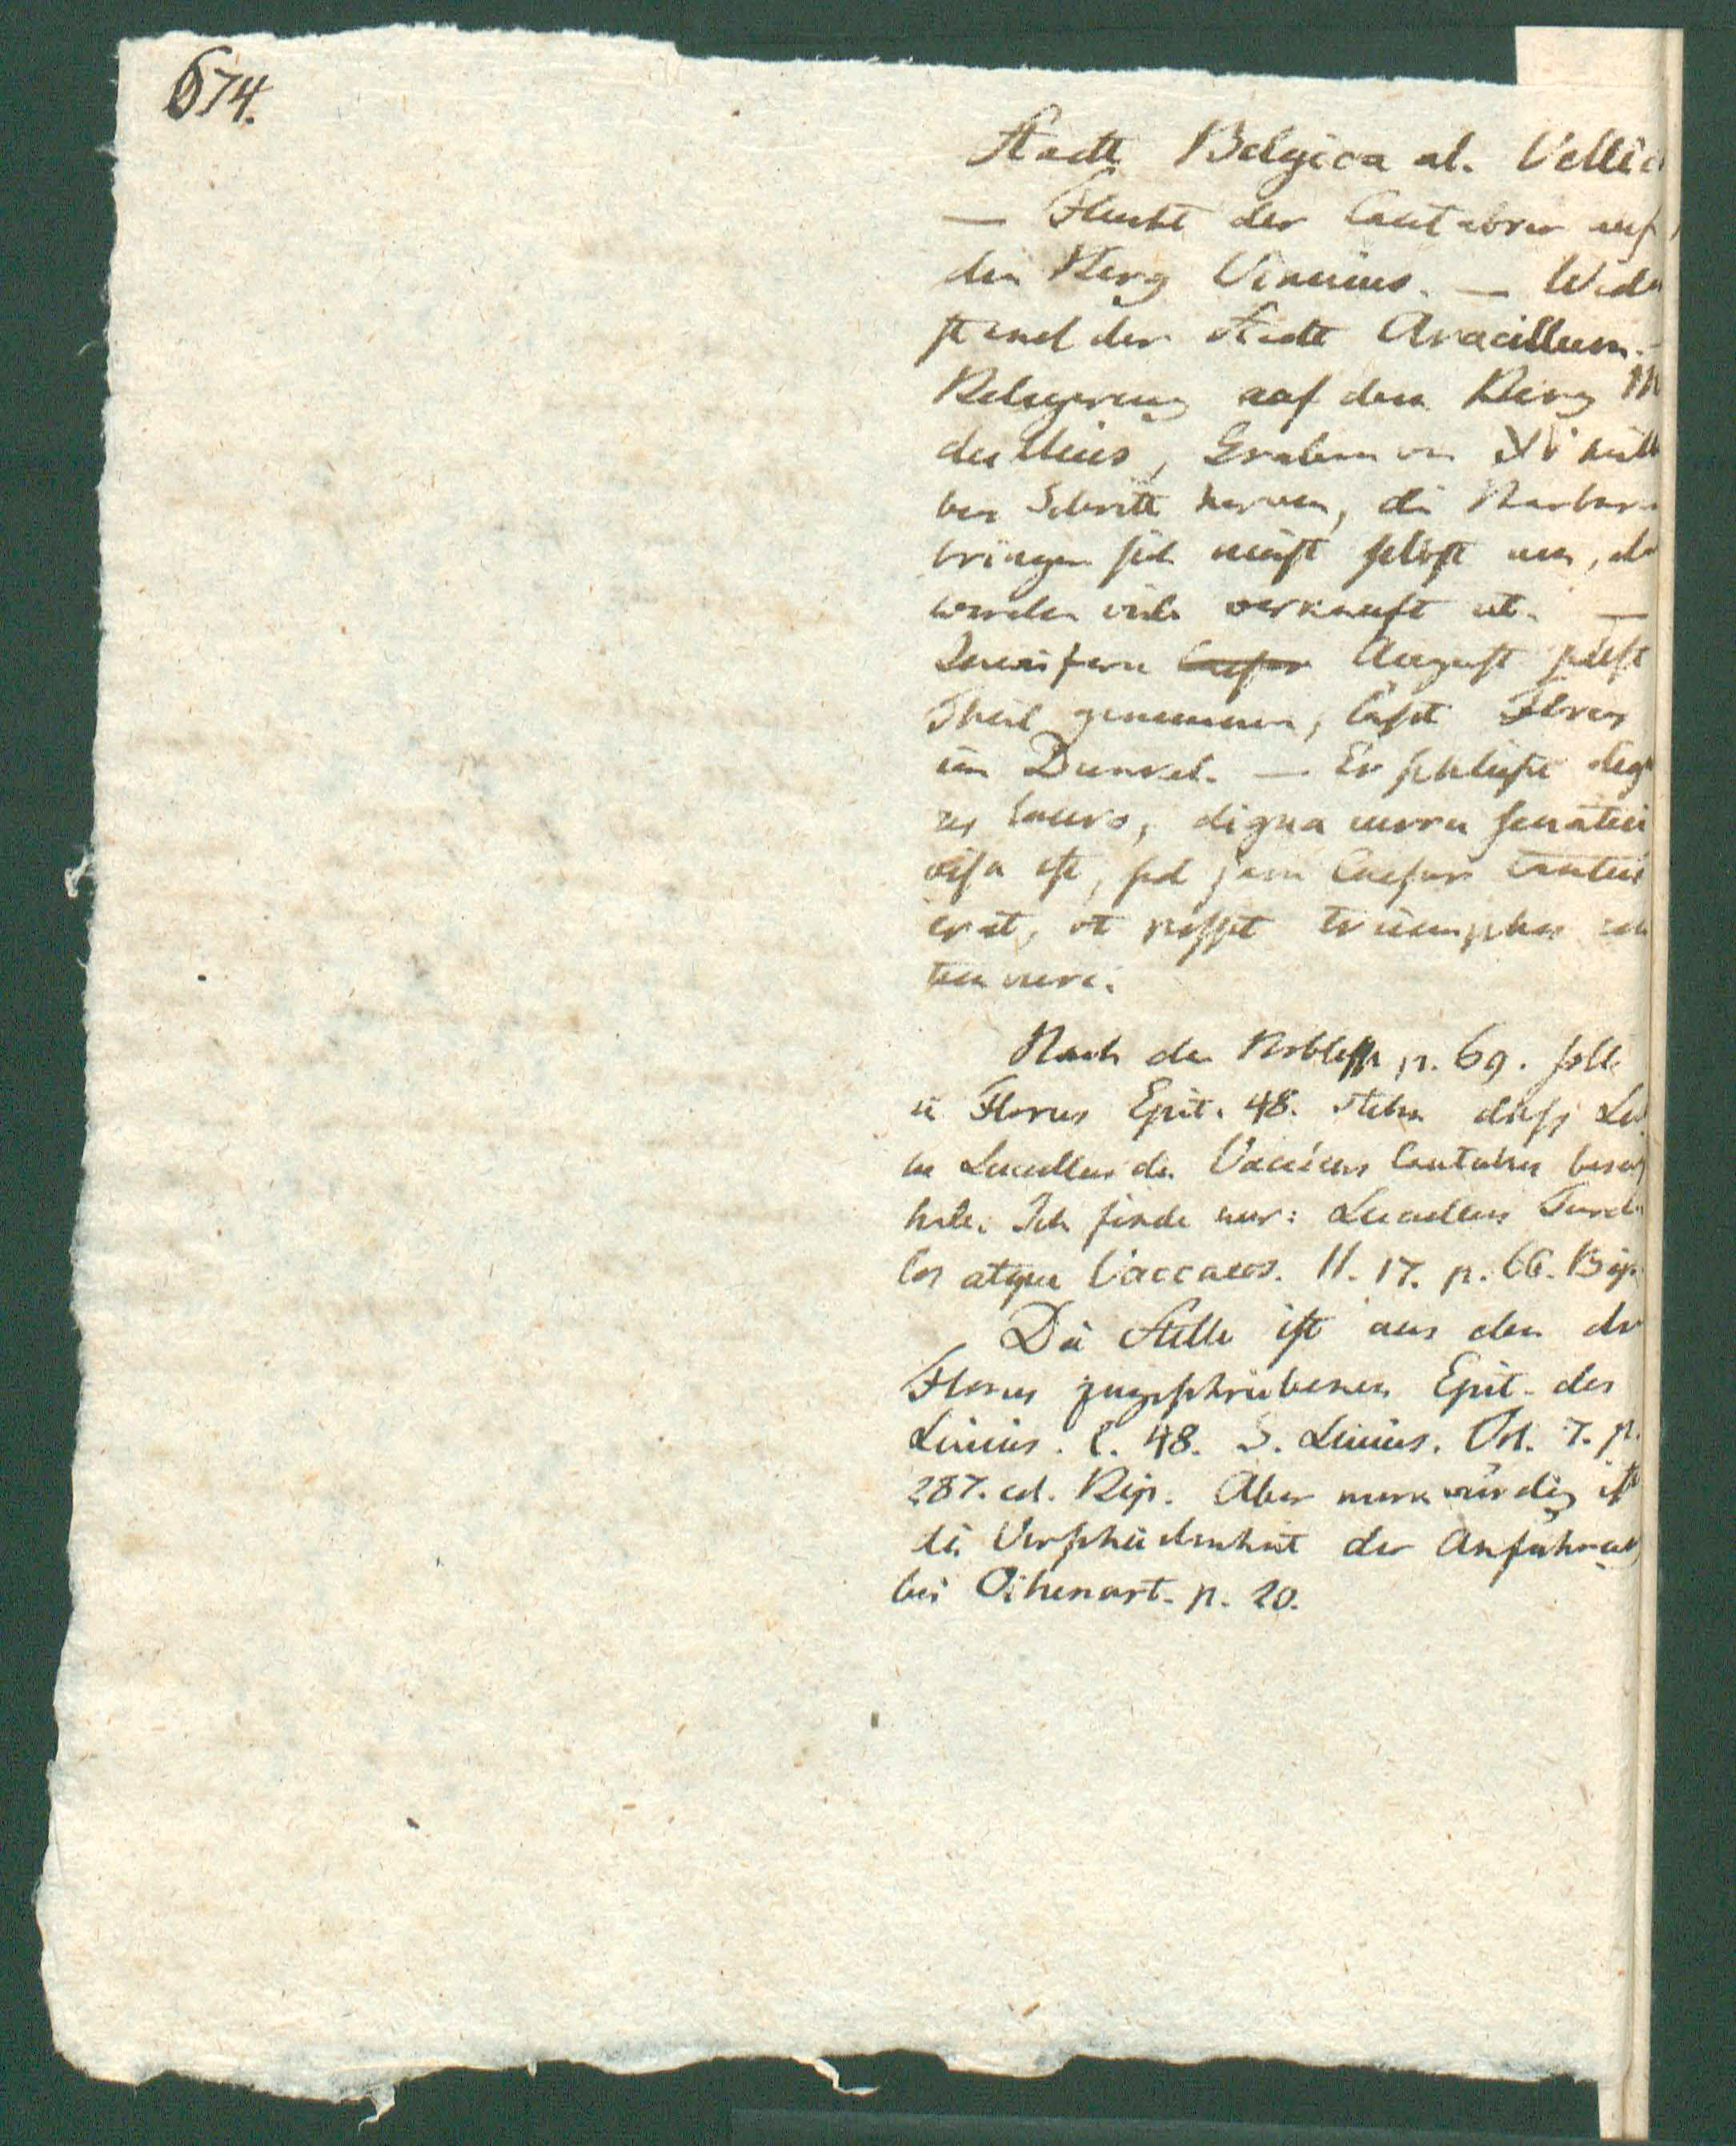 674.
Stadt Belgica al. Vellic
— Flucht der Cantabrer auf
den Berg Vinnius. — Wider
stand der Stadt Aracillum. —
Belagerung auf dem Berg M
dullius, Graben von XV
ben Schritt herum, die Barbaren
bringen sich meist selbst um, do
werden viele verkauft et. —
Inwiefern Caesar August selbst
Theil genommen, lässt Florus
im Dunkel. — Er schliesst dig
res lauro, digna curru senatui
visa est, sed jam Caesar tantus
erat, ut posset triumphos con
temnere.
Nach der Noblesse p. 69. soll
in Florus Epit. 48. stehn dass Lu
Lucullus die Vaccaeos Cantabros
habe. Ich finde nur: Lucullus Turdu
los atque Vaccaeos. II. 17. p. 66. Bip.
Die Stelle ist aus den dem
Florus zugeschriebenen Epit. des
Livius. l. 48. S. Livius. Vol. 7. p.
287. ed. Bip. Aber merkwürdig ist
die Verschiedenheit der Anführung
bei Oihenart. p. 20.